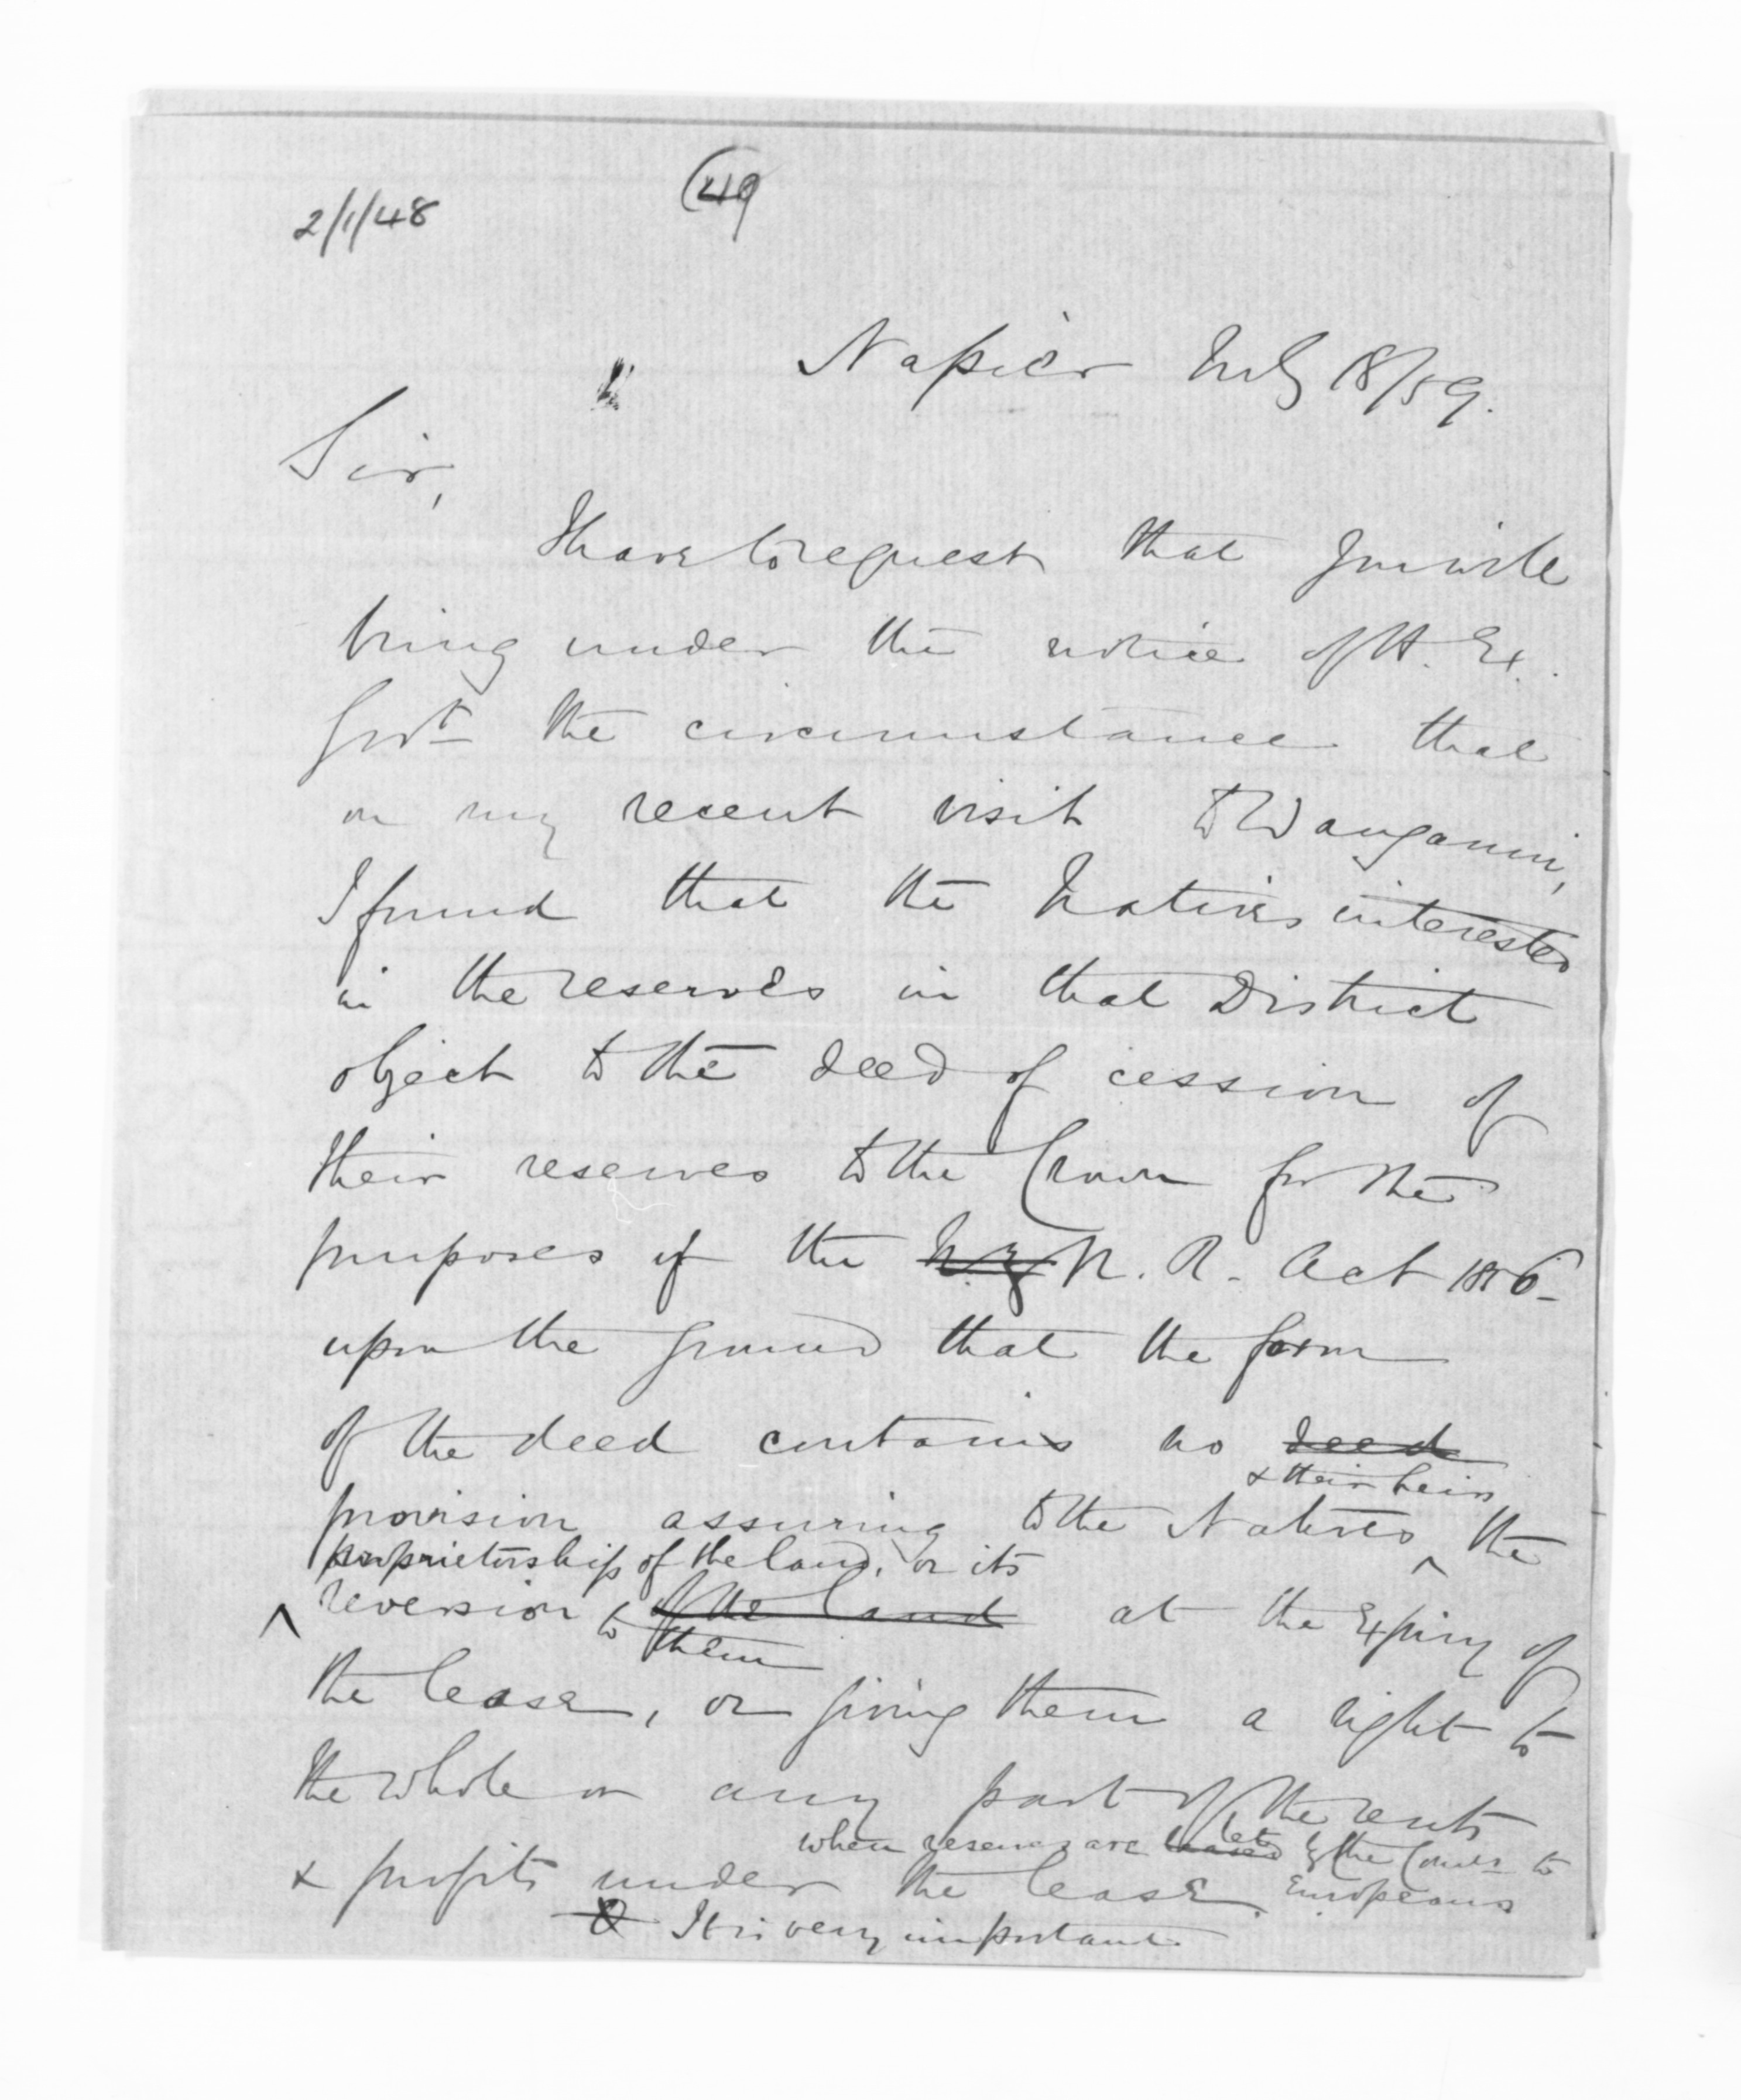 2/1/48
49
Napier July 18/59.
Sir,
I have to request that you will
bring under the notice of H. Ex.
Govt the circumstance that
on my recent visit to Wanganui,
I found that the Natives interested
in the reserves in that District
object to the deed of cession of
their reserves to the Crown for the
purposes of the N.Z. N. R. Act 1856
upon the ground that the form
of the deed contains no deed
& their heirs
provision assuring to the Natives the
proprietorship of the land, or its
reversion to of the land at the expiry of
them
the lease, or giving them a right to
the whole or any part of the rents
when reserves are leased let by the Comrs to
& profits under the lease. Europeans
It is very important